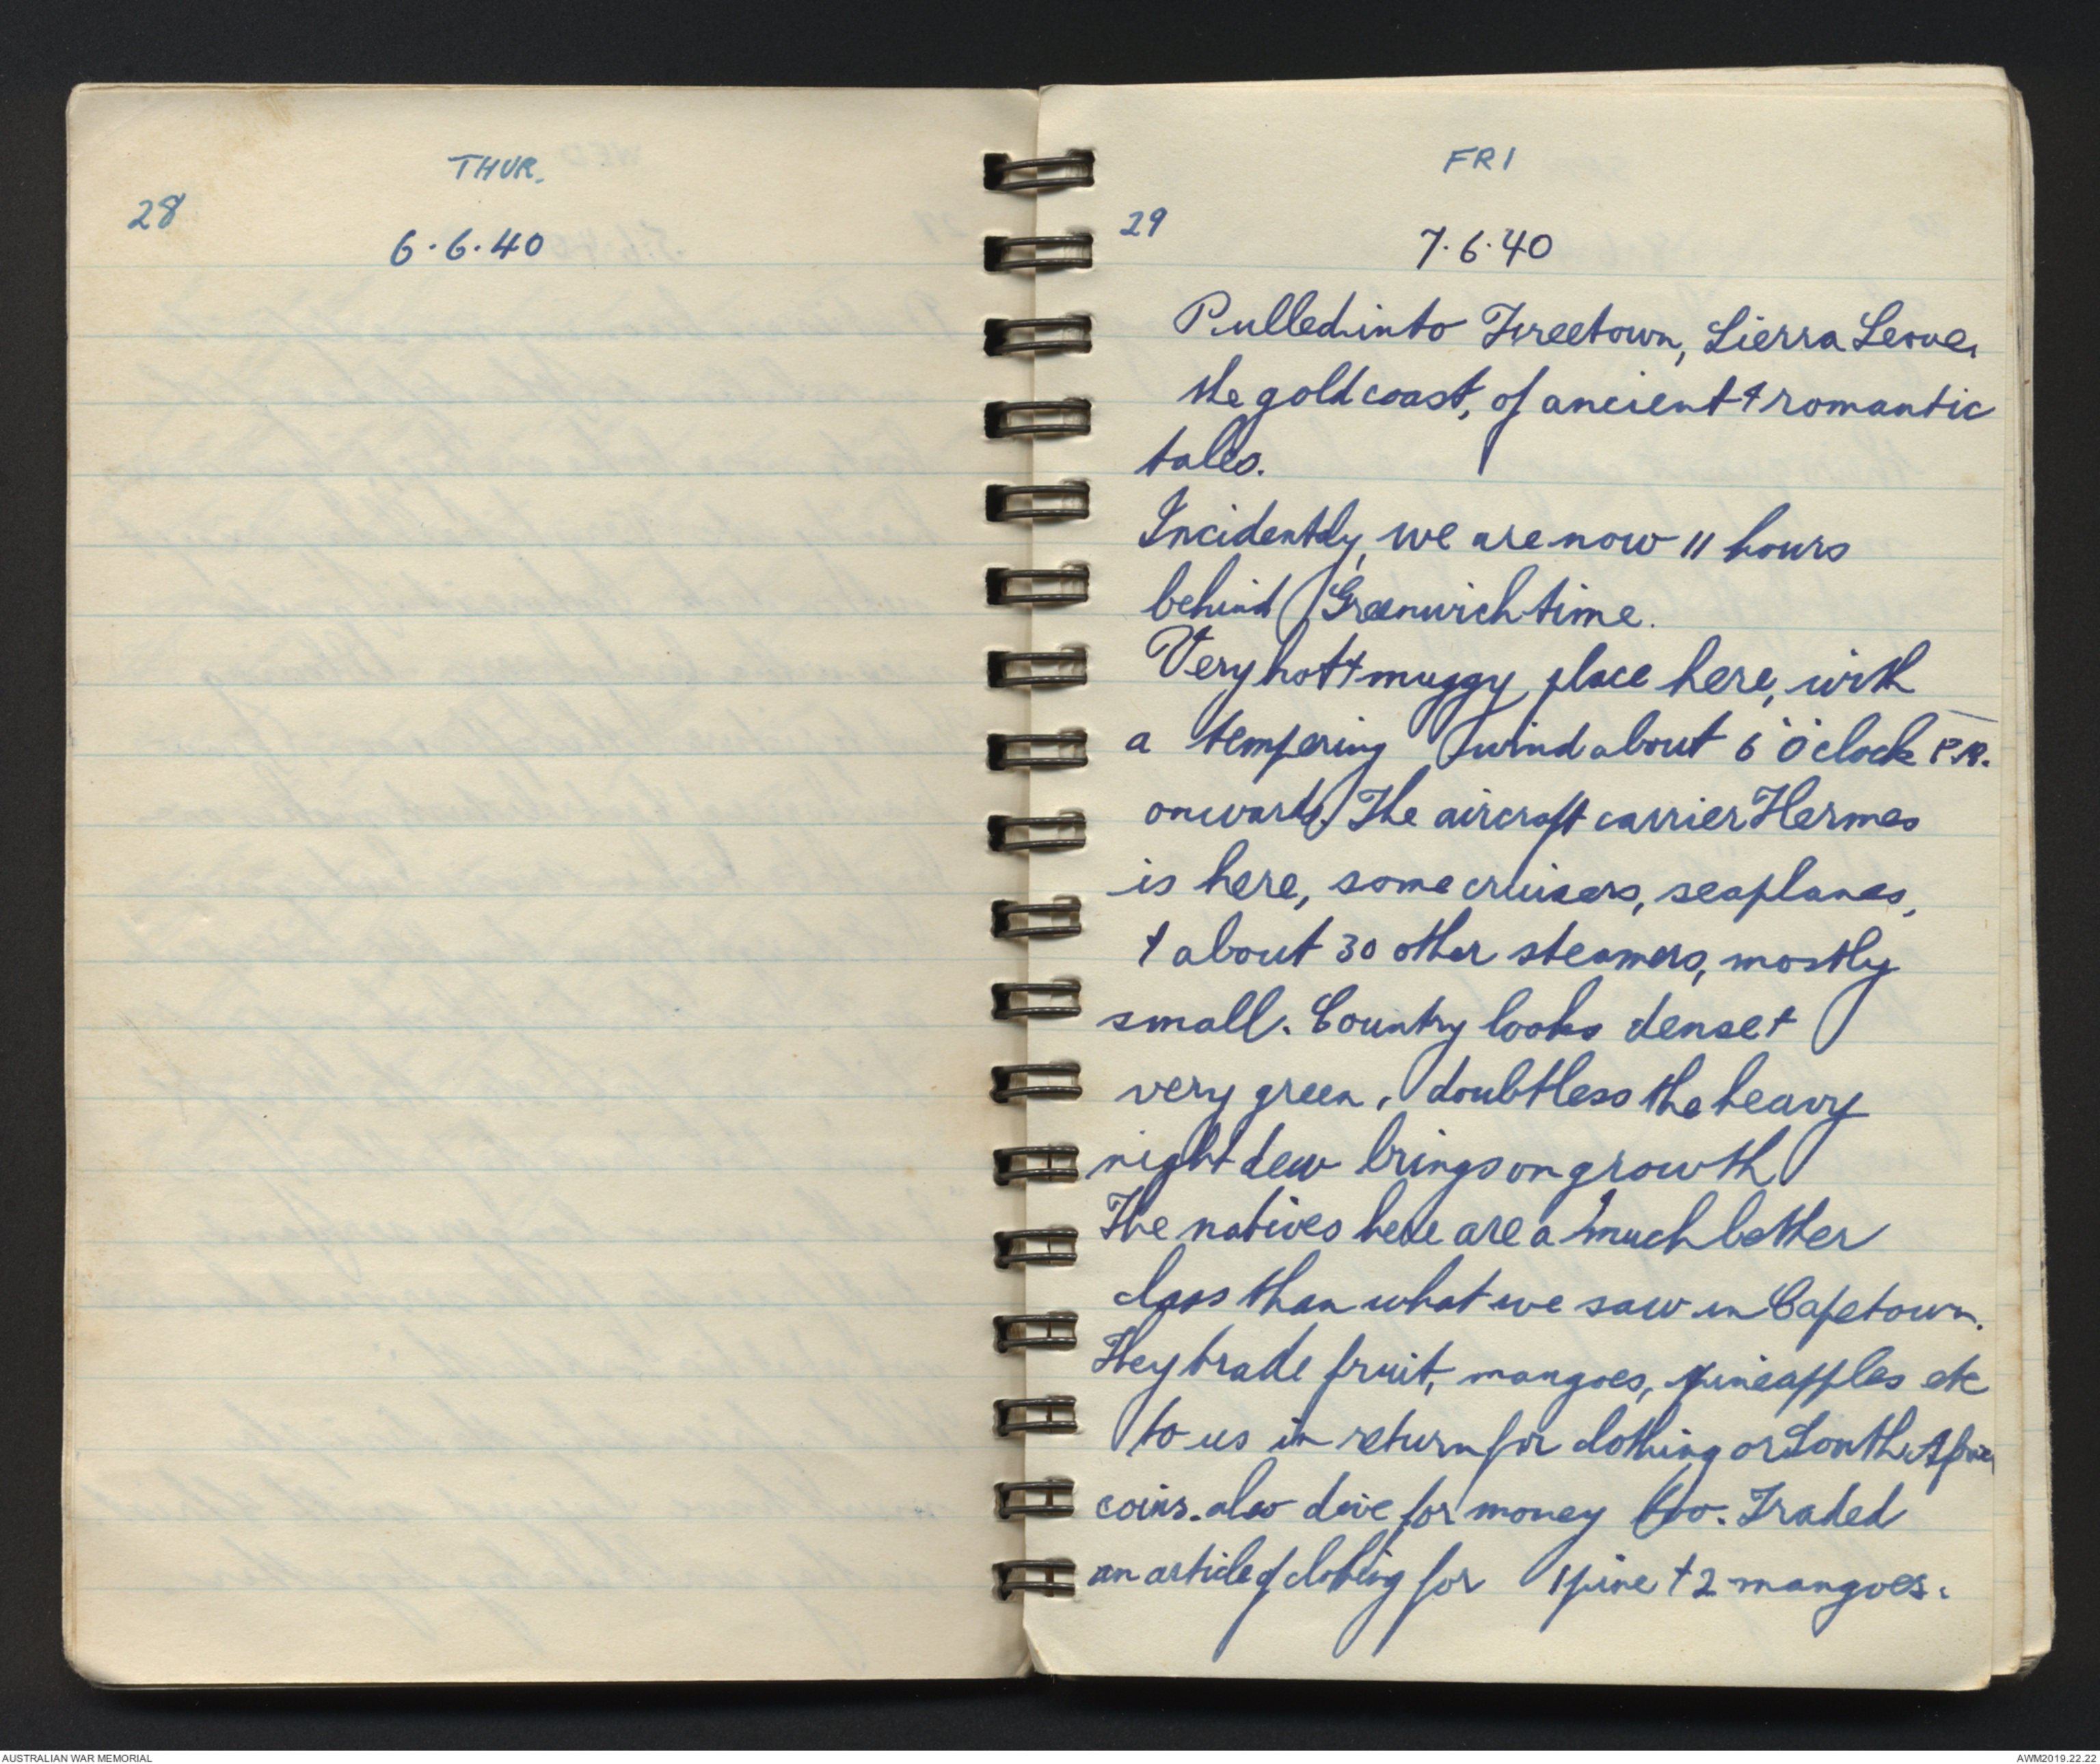 THUR.
28
6.6.40
FRI
29
7.6.40
Pulled into Freetown, Sierra Leone,
the gold coast, of ancient & romantic
tales.
Incidently, we are now 11 hours
behind Greenwich time.
Very hot & muggy place here, with
a tempering wind about 6 o'clock P.M.
onwards. The aircraft carrier Hermes
is here, some cruisers, seaplanes,
& about 30 other steamers, mostly
small. Country looks dense &
very green, doubtless the heavy
night dew brings on growth
The natives here are a much better
class than what we saw in Capetown.
They trade fruit, mangoes, pineapples etc
to us in return for clothing or South
coins. also dive for money too. Traded
an article of clothing for 1 pine & 2 mangoes.
AUSTRALIAN WAR MEMORIAL
AWM2019.22.22